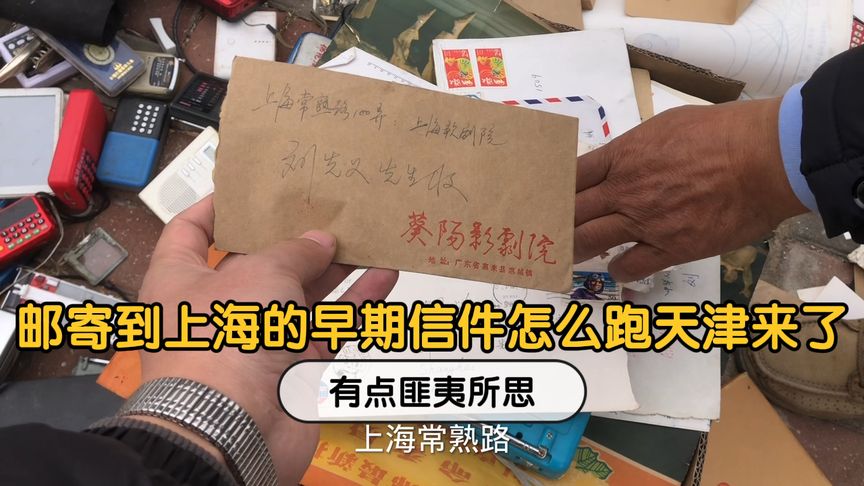 上海常熟路100弄：上海歌剧院
刘先义先生收
葵阳影剧院
地址：广东省惠来县惠城镇
1509
邮寄到上海的早期信件怎么跑天津来了
有点匪夷所思
上海常熟路